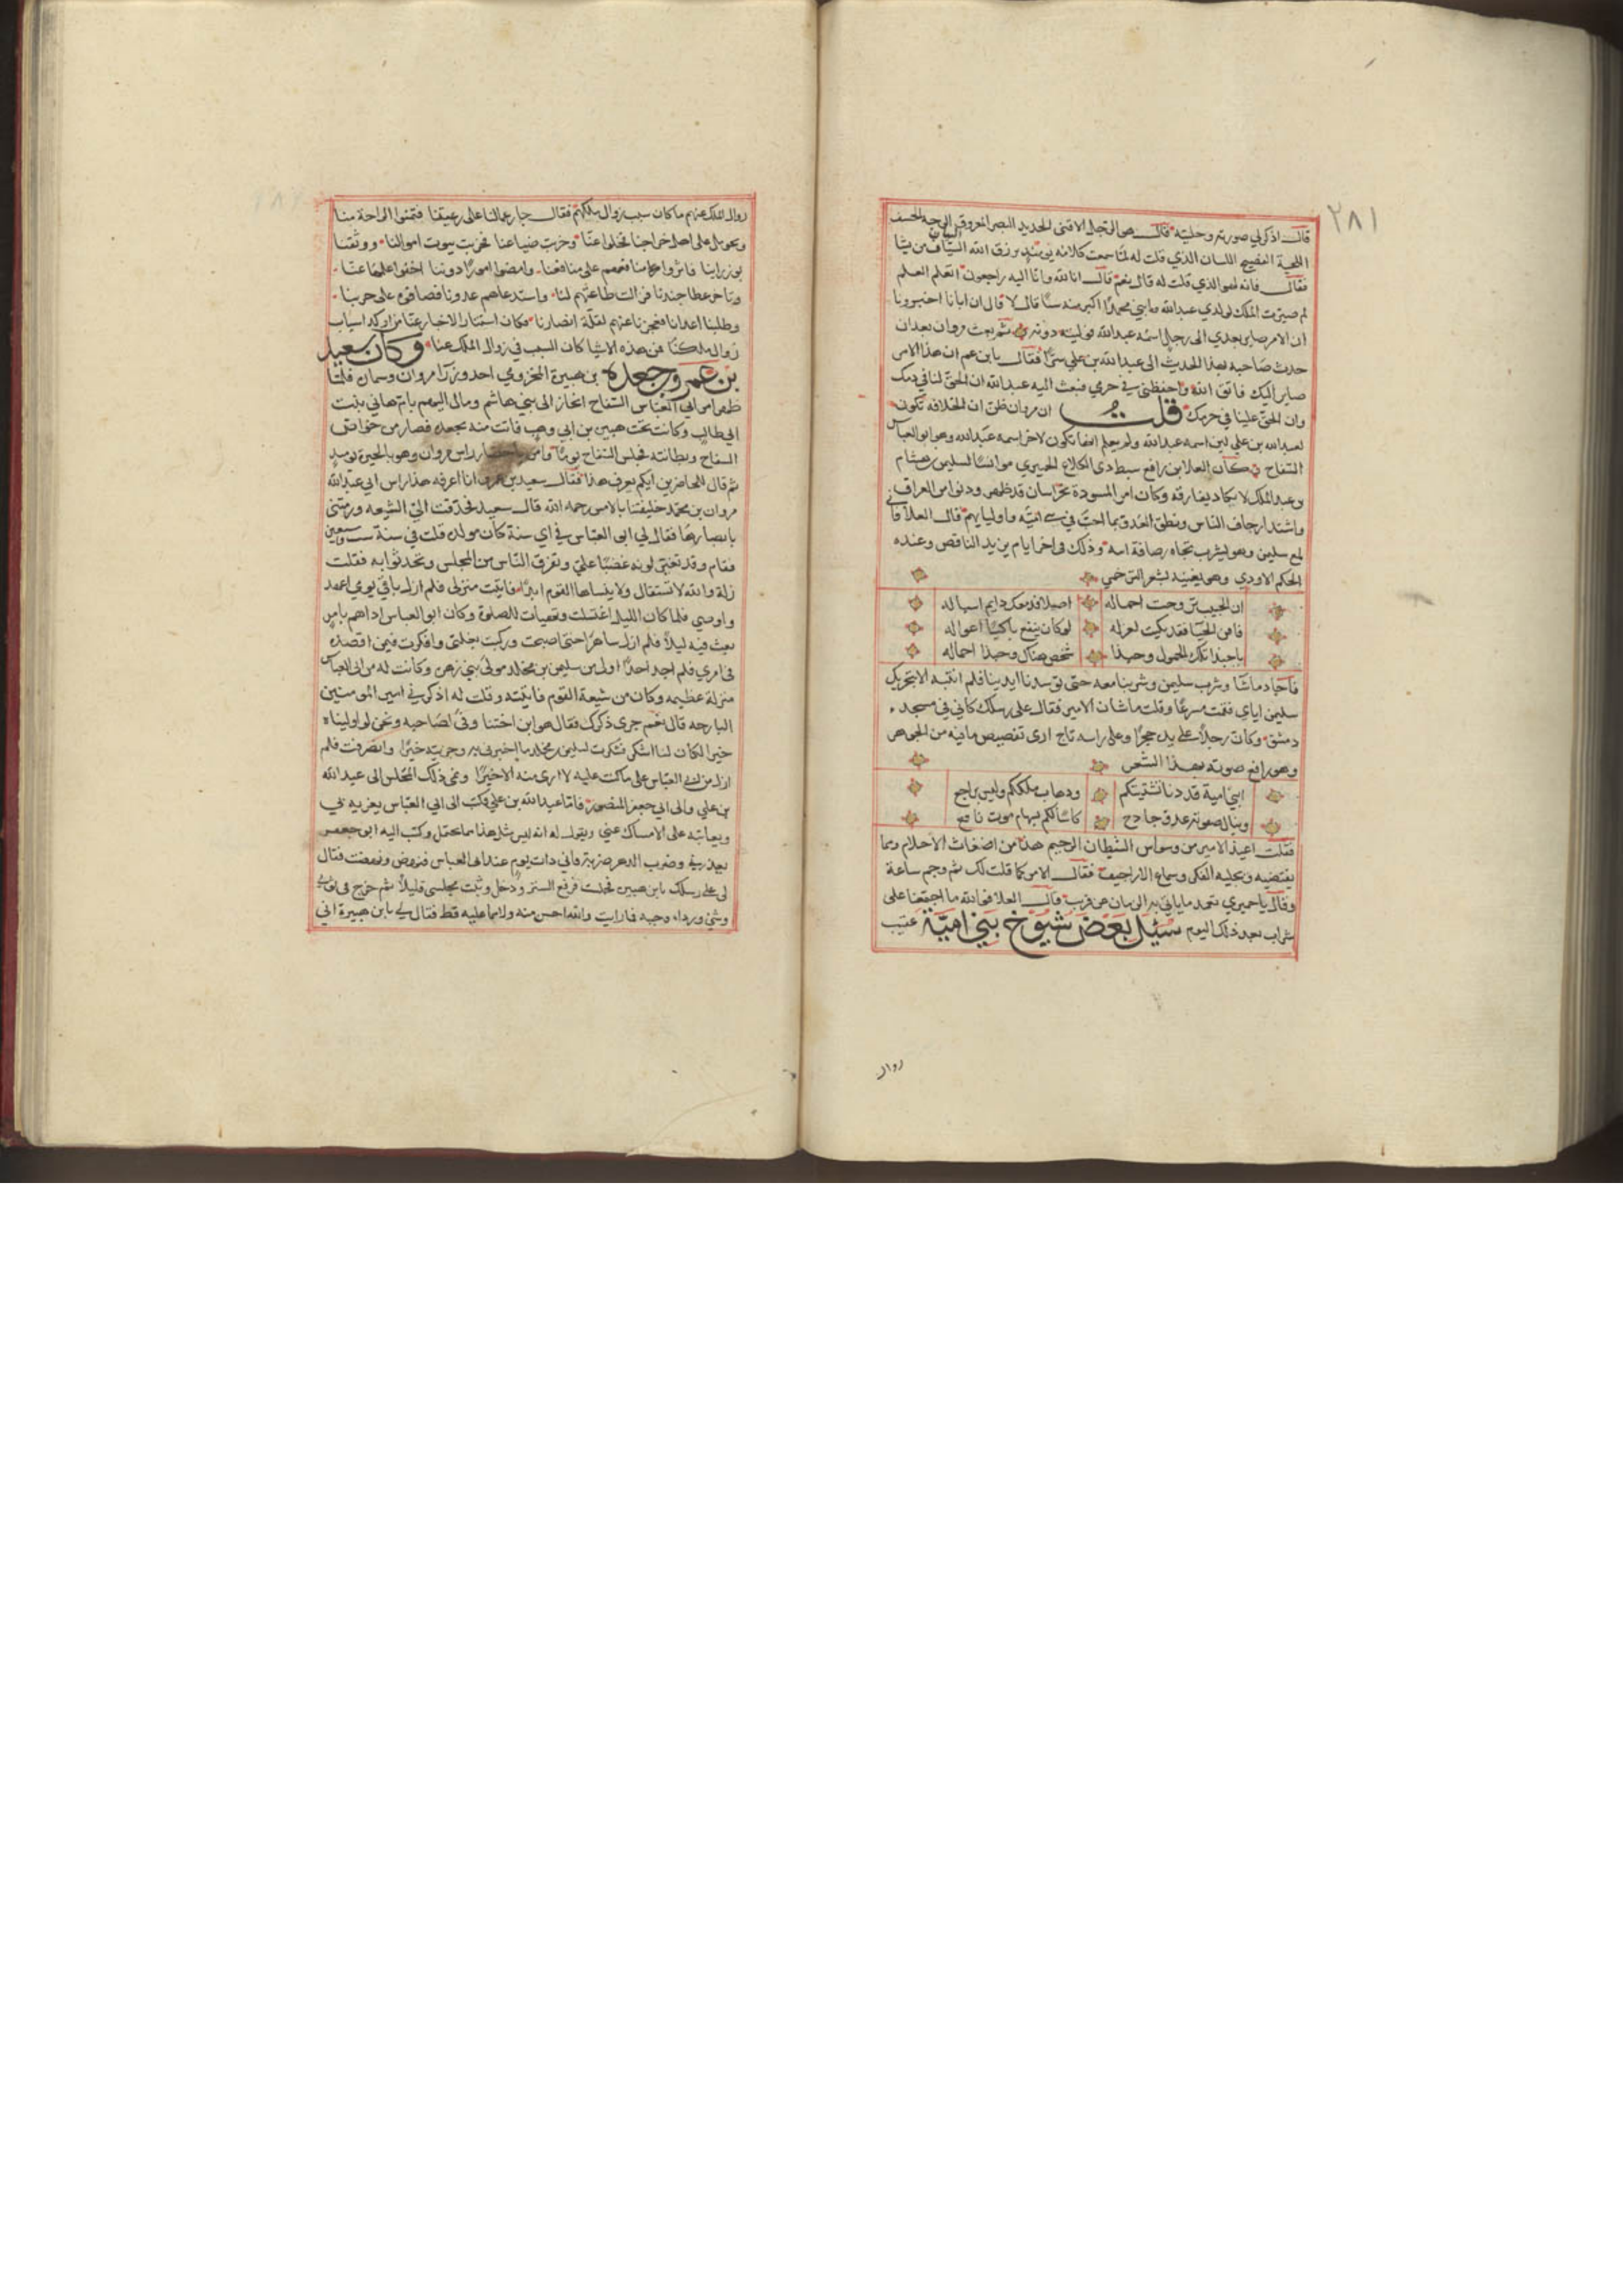 ٢٨١
قال اذكر لي صورته وحليته قال هو الرجل الاقنى الحديد البصر المعروق الوجه الحسن
اللحية الفصيح اللسان الذي قلت له لما سمعت كلامه يومئذ يرزق الله البيان من يشا
فقال فانه لهو الذي قلت له قال نعم قال انا لله وانا اليه راجعون اتعلم العلم
لم صيرت الملك لولدي عبدالله وابني محمد اكبر منه سنا قال لا قال ان ابانا اخبرونا
ان الامر صاير بعدي الى رجل اسمه عبدالله فوليته دونه ثم بعث مروان بعد ان
حدث صاحبه بهذا الحديث الى عبدالله بن علي سرا فقال يا بن عم ان هذا الامر
صاير اليك فاتق الله واحفظني في حرمي فبعث اليه عبدالله ان الحق لنا في دمك
وان الحق علينا في حرمك قلت ان مروان ظن ان الخلافه تكون
لعبدالله بن علي لان اسمه عبدالله ولم يعلم انها تكون لاخر اسمه عبدالله وهو ابو العباس
السفاح كان العلا بن رافع سبط ذي الكلاع الحميري موانسا لسليمن بن هشام
بن عبدالملك لا يكاد يفارقه وكان امر المسودة بخراسان قد ظهر ودنوا من العراق
واشتد ارجاف الناس ونطق العدو بما احب في بني اميه واوليايهم قال العلا فا
لمع سليمن وهو ليشرب تجاه رصافة ابيه وذلك في اخر ايام يزيد الناقص وعنده
الحكم الاودي وهو يغنيه بشعر العرجي
ان الحبيب تروحت احماله اصلا فدمعك دايم اسباله
فاقن الحيا فقد بكيت لعزله لو كان ينفع باكيا اعواله
يا حبذا تلك الحمول وحبذا شخص هناك وحبذا احماله
فاجاد ما شا وشرب سليمن وشربنا معه حتى توسدنا ايدينا فلم انتبه الا بتحريك
سليمن اياي فقمت مسرعا وقلت ما شان الامير فقال على رسلك كاني في مسجد
دمشق وكان رجلا على يده حجرا وعلى راسه تاج ارى تفصيص ما فيه من الجوهر
وهو رافع صوته بهذا الشعر
ابني امية قد دنا تشتيتكم وذهاب ملككم وليس براجع
وينال صفوته عدو جادح كاسا لكم بسهام موت ناقع
فقلت اعيذ الامير من وسواس الشيطان الرجيم هذا من اضغاث الاحلام ومما
يقتضيه ويجليه الفكر وسماع الاراجيف فقال الامر كما قلت لك ثم وجم ساعة
وقال يا حميري بعيد ما ياتي به الزمان هو قريب قال العلا فوالله ما اجتمعنا على
شراب بعد ذلك اليوم سئل بعض شيوخ بني امية عقيب
زوال
زوال الملك عنهم ما كان سبب زوال ملككم فقال جار عمالنا على رعيتنا فتمنوا الراحة منا
وتحومل على اهل خراجنا تجلوا عنا وخربت ضياعنا فخربت بيوت اموالنا ووثقنا
بوزراينا فاثروا مرافقهم على منافعنا وامضوا امورا دوننا اخفوا علمها عنا
وتاخر عطا جندنا فزالت طاعتهم لنا واستدعاهم عدونا فصافوه على حربنا
وطلبنا اعداونا فعجزنا عنهم لقلة انصارنا وكان استتار الاخبار عنا من اوكد اسباب
زوال ملكنا فهذه الاشيا كان السبب في زوال الملك عنا وكان سعيد
بن عمرو جعدة بن هبيرة المخزومي احد وزرا مروان وسمان فلما
ظهر امر ابي العباس السفاح انحاز الى بني هاشم ومالى اليهم بام هاني بنت
ابي طالب وكانت تحت هبيرة بن ابي وهب فاتت منه بجعده فصار من خواص
السفاح وبطانته فجلس السفاح يوما وامر باحضار راس مروان وهو بالحيرة يوميذ
ثم قال للحاضرين ايكم يعرف هذا فقال سعيد بن عمرو انا اعرفه هذا راس ابي عبدالله
مروان بن محمد خليفتنا بالامس رحمه الله قال سعيد فحدقت الي الشيعه ورمتني
بابصارها فقال لي ابو العباس في اي سنة كان مولده قلت في سنة ست وسبعين
فقام وقد تغير لونه غضبا علي وتفرق الناس من المجلس وتحدثوا به فقلت
زلة والله لا تستقال ولا ينساها القوم ابدا فاتيت منزلي فلم ازل باقي يومي اعهد
واوصي فلما كان الليل اغتسلت وتهيات للصلوة وكان ابو العباس اذا هم بامر
بعث فيه ليلا فلم ازل ساهرا حتى اصبحت وركبت بغلتي وافكرت فيمن اقصده
في امري فلم اجد احدا اولى من سليمن بن مخلد مولى بني زهره وكانت له من ابي العباس
منزلة عظيمه وكان من شيعة القوم فاتيته وقلت له اذكرني امير المومنين
البارحه قال نعم جرى ذكرك فقال هو ابن اختنا وفى لصاحبه ونحن لو اوليناه
خيرا لكان لنا اشكر فشكرت لسليمن بن مخلد ما اخبرني به وجزيته خيرا وانصرفت فلم
ازل من ابي العباس على ما كنت عليه لا ارى منه الا خيرا ونمى ذلك المجلس الى عبدالله
بن علي والى ابي جعفر المنصور فاما عبدالله بن علي فكتب الى ابي العباس يغريه بي
ويعاتبه على الامساك عني ويقول له انه ليس مثل هذا مما يحتمل وكتب اليه ابو جعفر
يعذرني وضرب الدهر ضربه فاني ذات يوم عند ابي العباس فنهض ونهضت فقال
لي على رسلك يا بن هبيرة فجلست فرفع الستر ودخل وثبت مجلسي قليلا ثم خرج في ثوبي
وشي ورداء وجبه فما رايت والله احسن منه ولا مما عليه قط فقال لي يا بن هبيرة اني